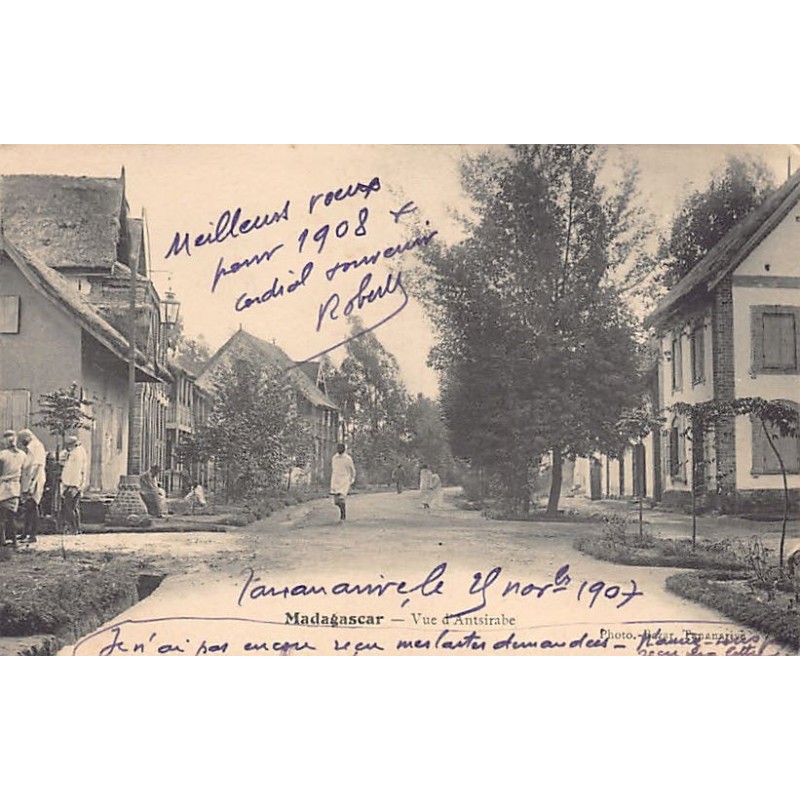 Meilleurs vœux
pour 1908 +
cordial souvenir
Robert
Tananarive, le 25 novbre 1907
Madagascar — Vue d'Antsirabe
Photo. Tananarive
Je n'ai pas encore reçu mes cartes demandées -
reçu lettre